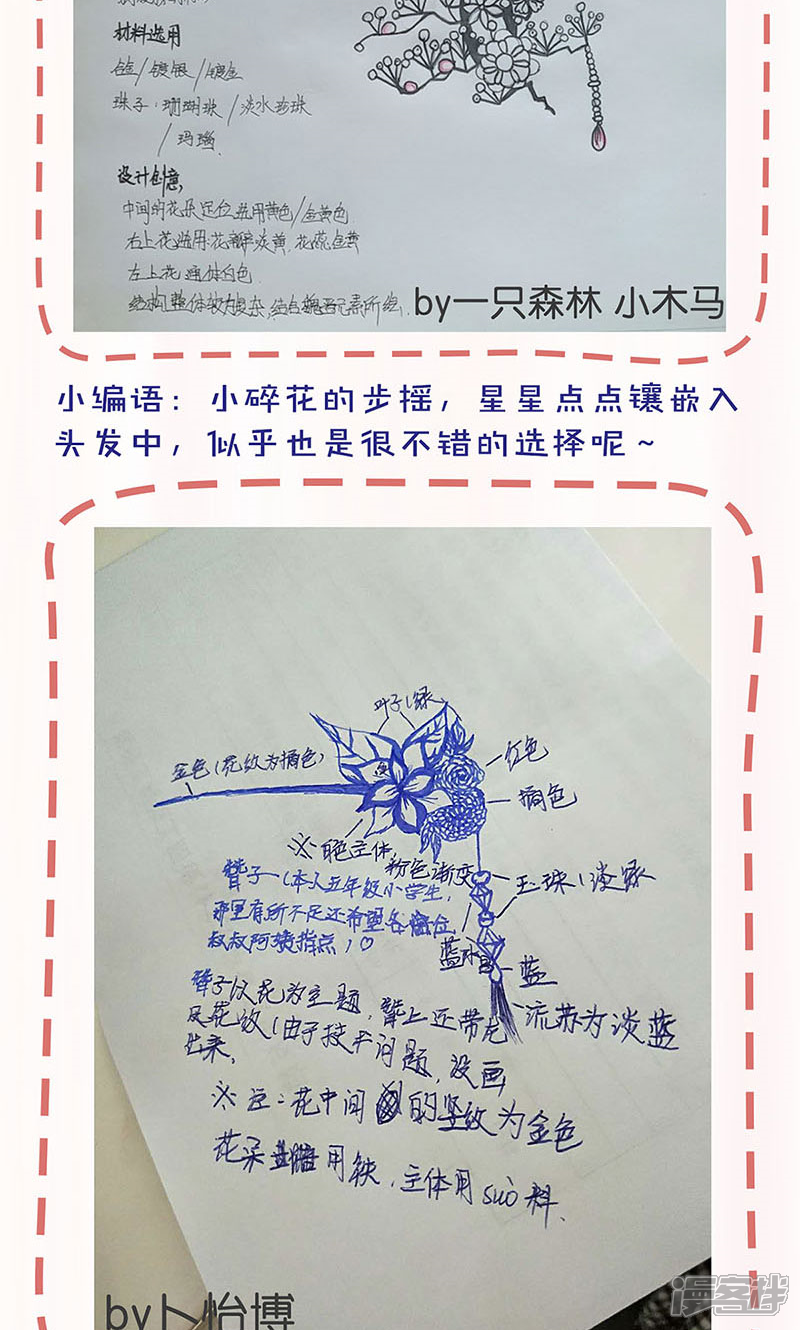 材料选用
合金/镀银/镀金
珠子:珊瑚珠/淡水珍珠
/玛瑙
设计创意,
中间的花朵定位选用黄色/金黄色
右上花选用:花瓣淡黄,花蕊金黄
左上花通体白色
结构整体较为复杂,结合 元素所绘.
by一只森林 小木马
小编语:小碎花的步摇,星星点点镶嵌入
头发中,似乎也是很不错的选择呢~
叶子(绿)
金色(花纹为橘色)
红色
橘色
※ 主体,
粉色渐变
玉珠(淡绿
簪子—(本人五年级小学生,
那里有所不足还希望各位
叔叔阿姨指点)♡
蓝水
蓝
流苏为淡蓝
簪子以花为主题,簪上还带龙
及花纹(由于技术问题,没画
出来,
※注:花中间的竖纹为金色
花朵 用铁,主体用suò料.
by卜怡博
漫客栈